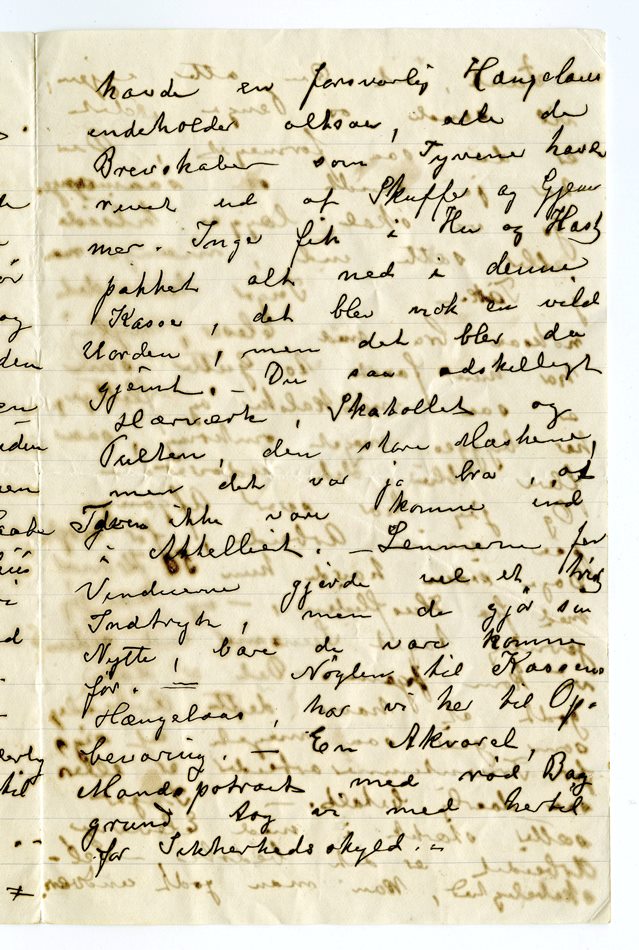 havde en forsvarlig Hængelaas
indeholder altsaa, alle de
Brevskaber som Tyvene havde
revet ud af Skuffer og Gjem
mer. Inge fik i Hu og Hast
pakket alt ned i denne
Kasse, det blev nok en vild
Uorden, men det blev da
gjemt. – Du saa adskilligt
Hærværk, Skatollet og
Pulten, den store Maskene,
men det var ja bra, at
Tyven ikke vare komme ind
i Attelliert. – Lemmerne for
Vinduerne gjorde vel et trist
Indtryk, men de gjør sin
Nytte, bare de vare komme
før. — Nøglen til Kassens
Hængelaas, har vi her til Op-
bevaring. – En Akvarel,
Mandspotræt med rød Bag
grund tog vi med hertil
for Sikkerheds skyld. –